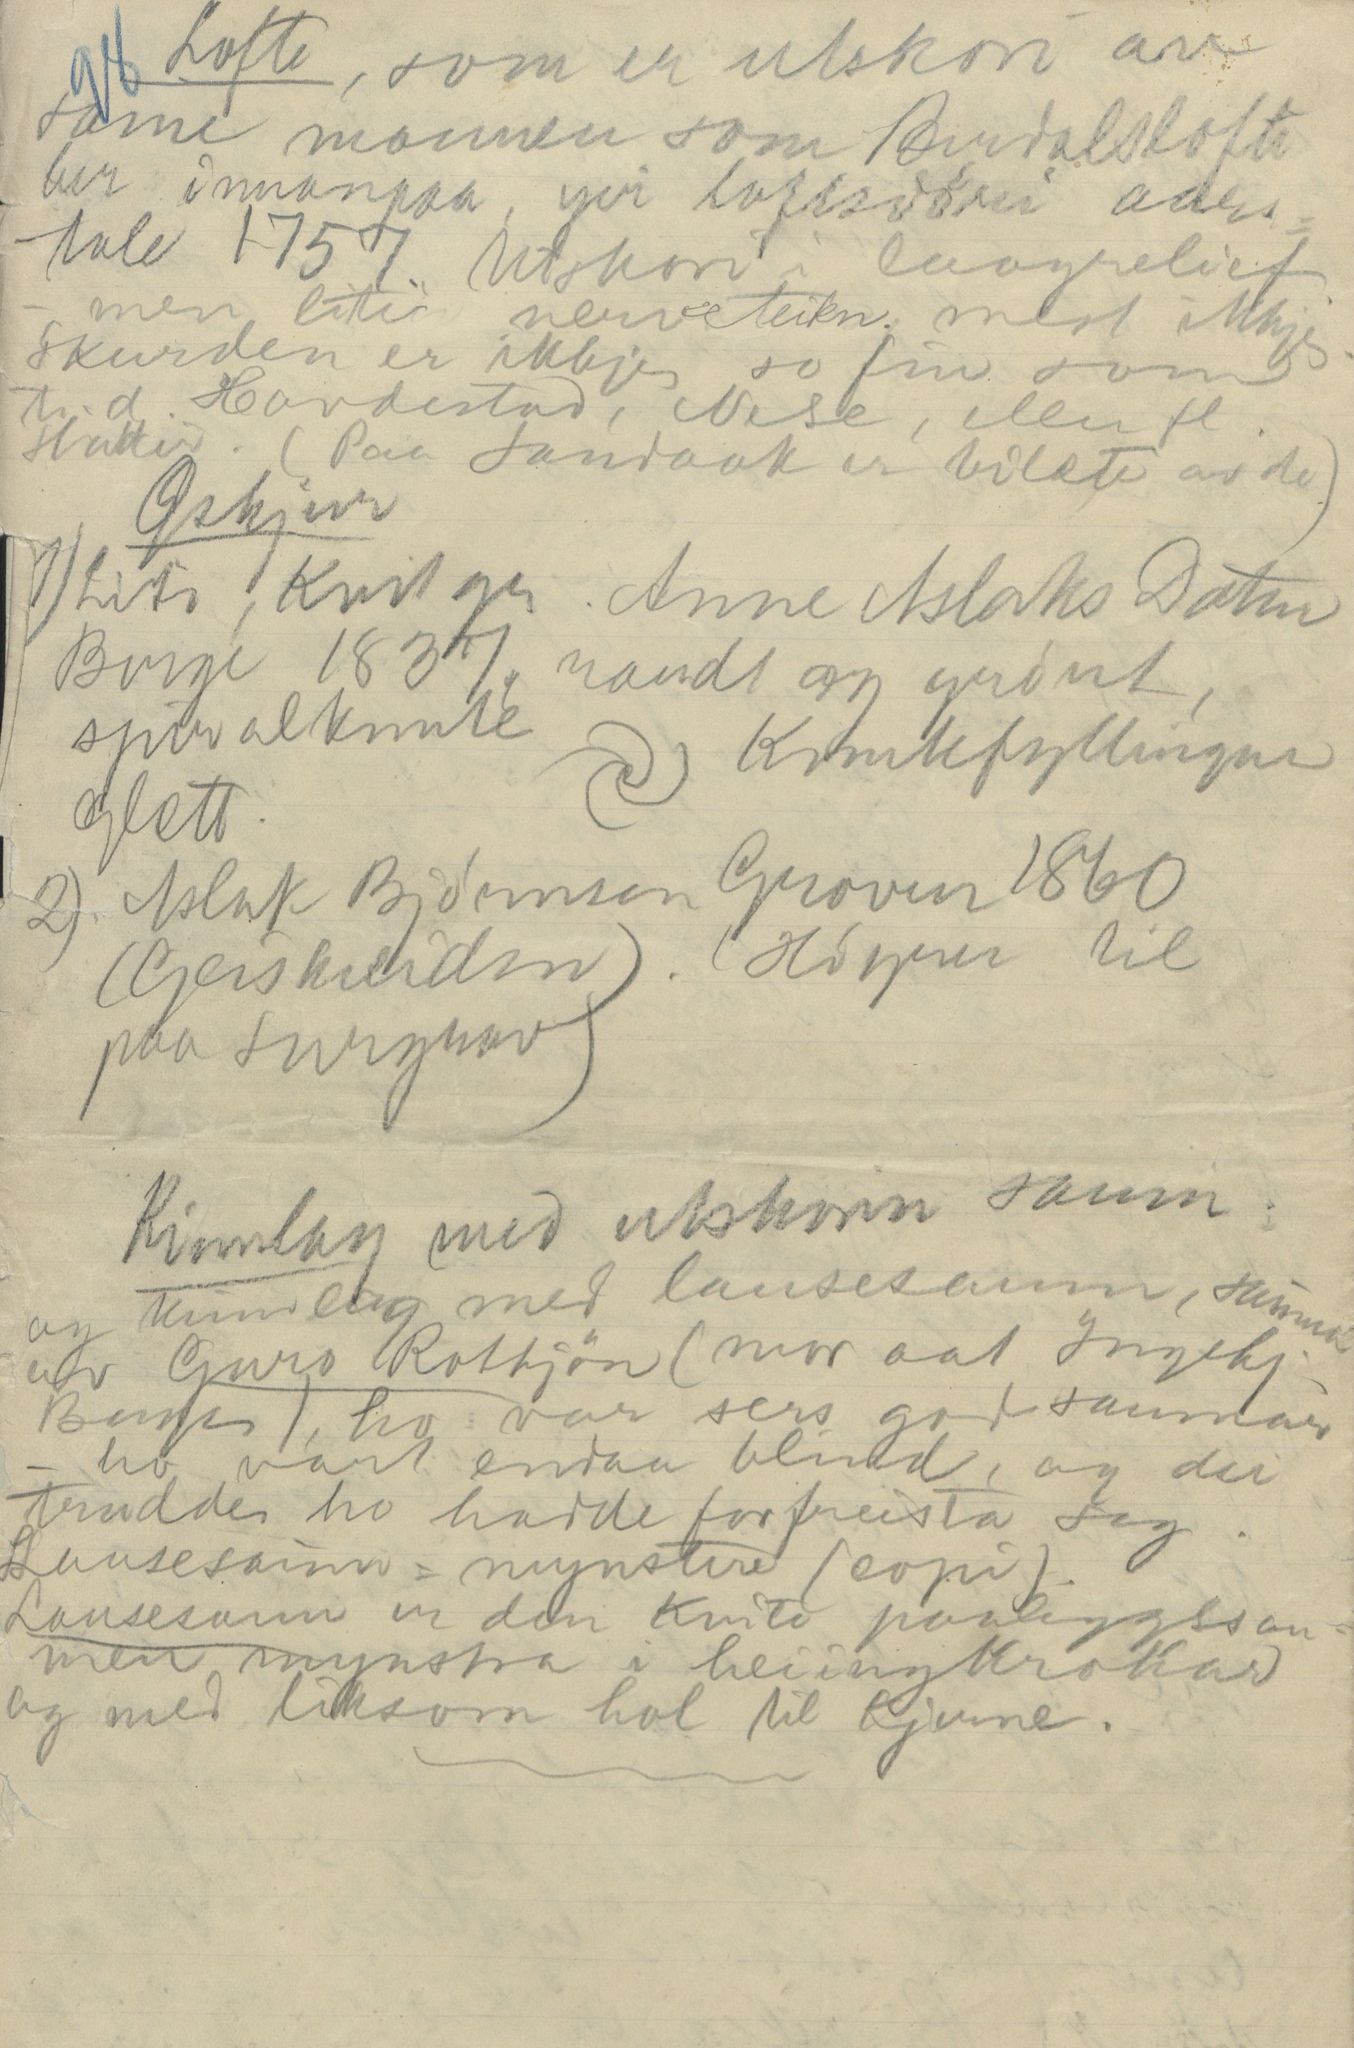 98 Lofte, som er utskori av
same mannen som Burdalslofte
ber innanpaa, yvi loftsdöri aars-
tale 1757. Utskori i laagrelief
- men litit nerveteikn. mest ikkje
Skurden er ikkje so fin som
t.d. Hovdestad, Nese, ellen fl.
stader. (Paa Sandaak er bilete av de)
Öskjur
1) Liti, Kvit gr. Anne Aslaks Dater
Borge 1837. raudt og grönt,
spiralknute Knutefyllingar
glett.
2). Aslak Björnsen Groven 1860
(Geiskreidsn). (Höyrer til
paa Surguav)
Kinnlag med utskorin saum:
og kinnlag med lausesaum, saumak
av Guro Rotkjön (mor aat Ingebj.
Borge), ho var sers god saumar
- ho vart endaa blind, og dei
trudde ho hadde forfreista seg.
Lausesaum = mynstere (copi).
Lausesaum er den kvite paaleggssau-
men mynstra i heiingkrokar
og med liksom hol til kjerne.